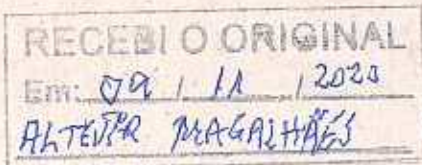 RECEBI O ORIGINAL
Em: 09 / 11 / 2020
ALTEVIR MAGALHÃES